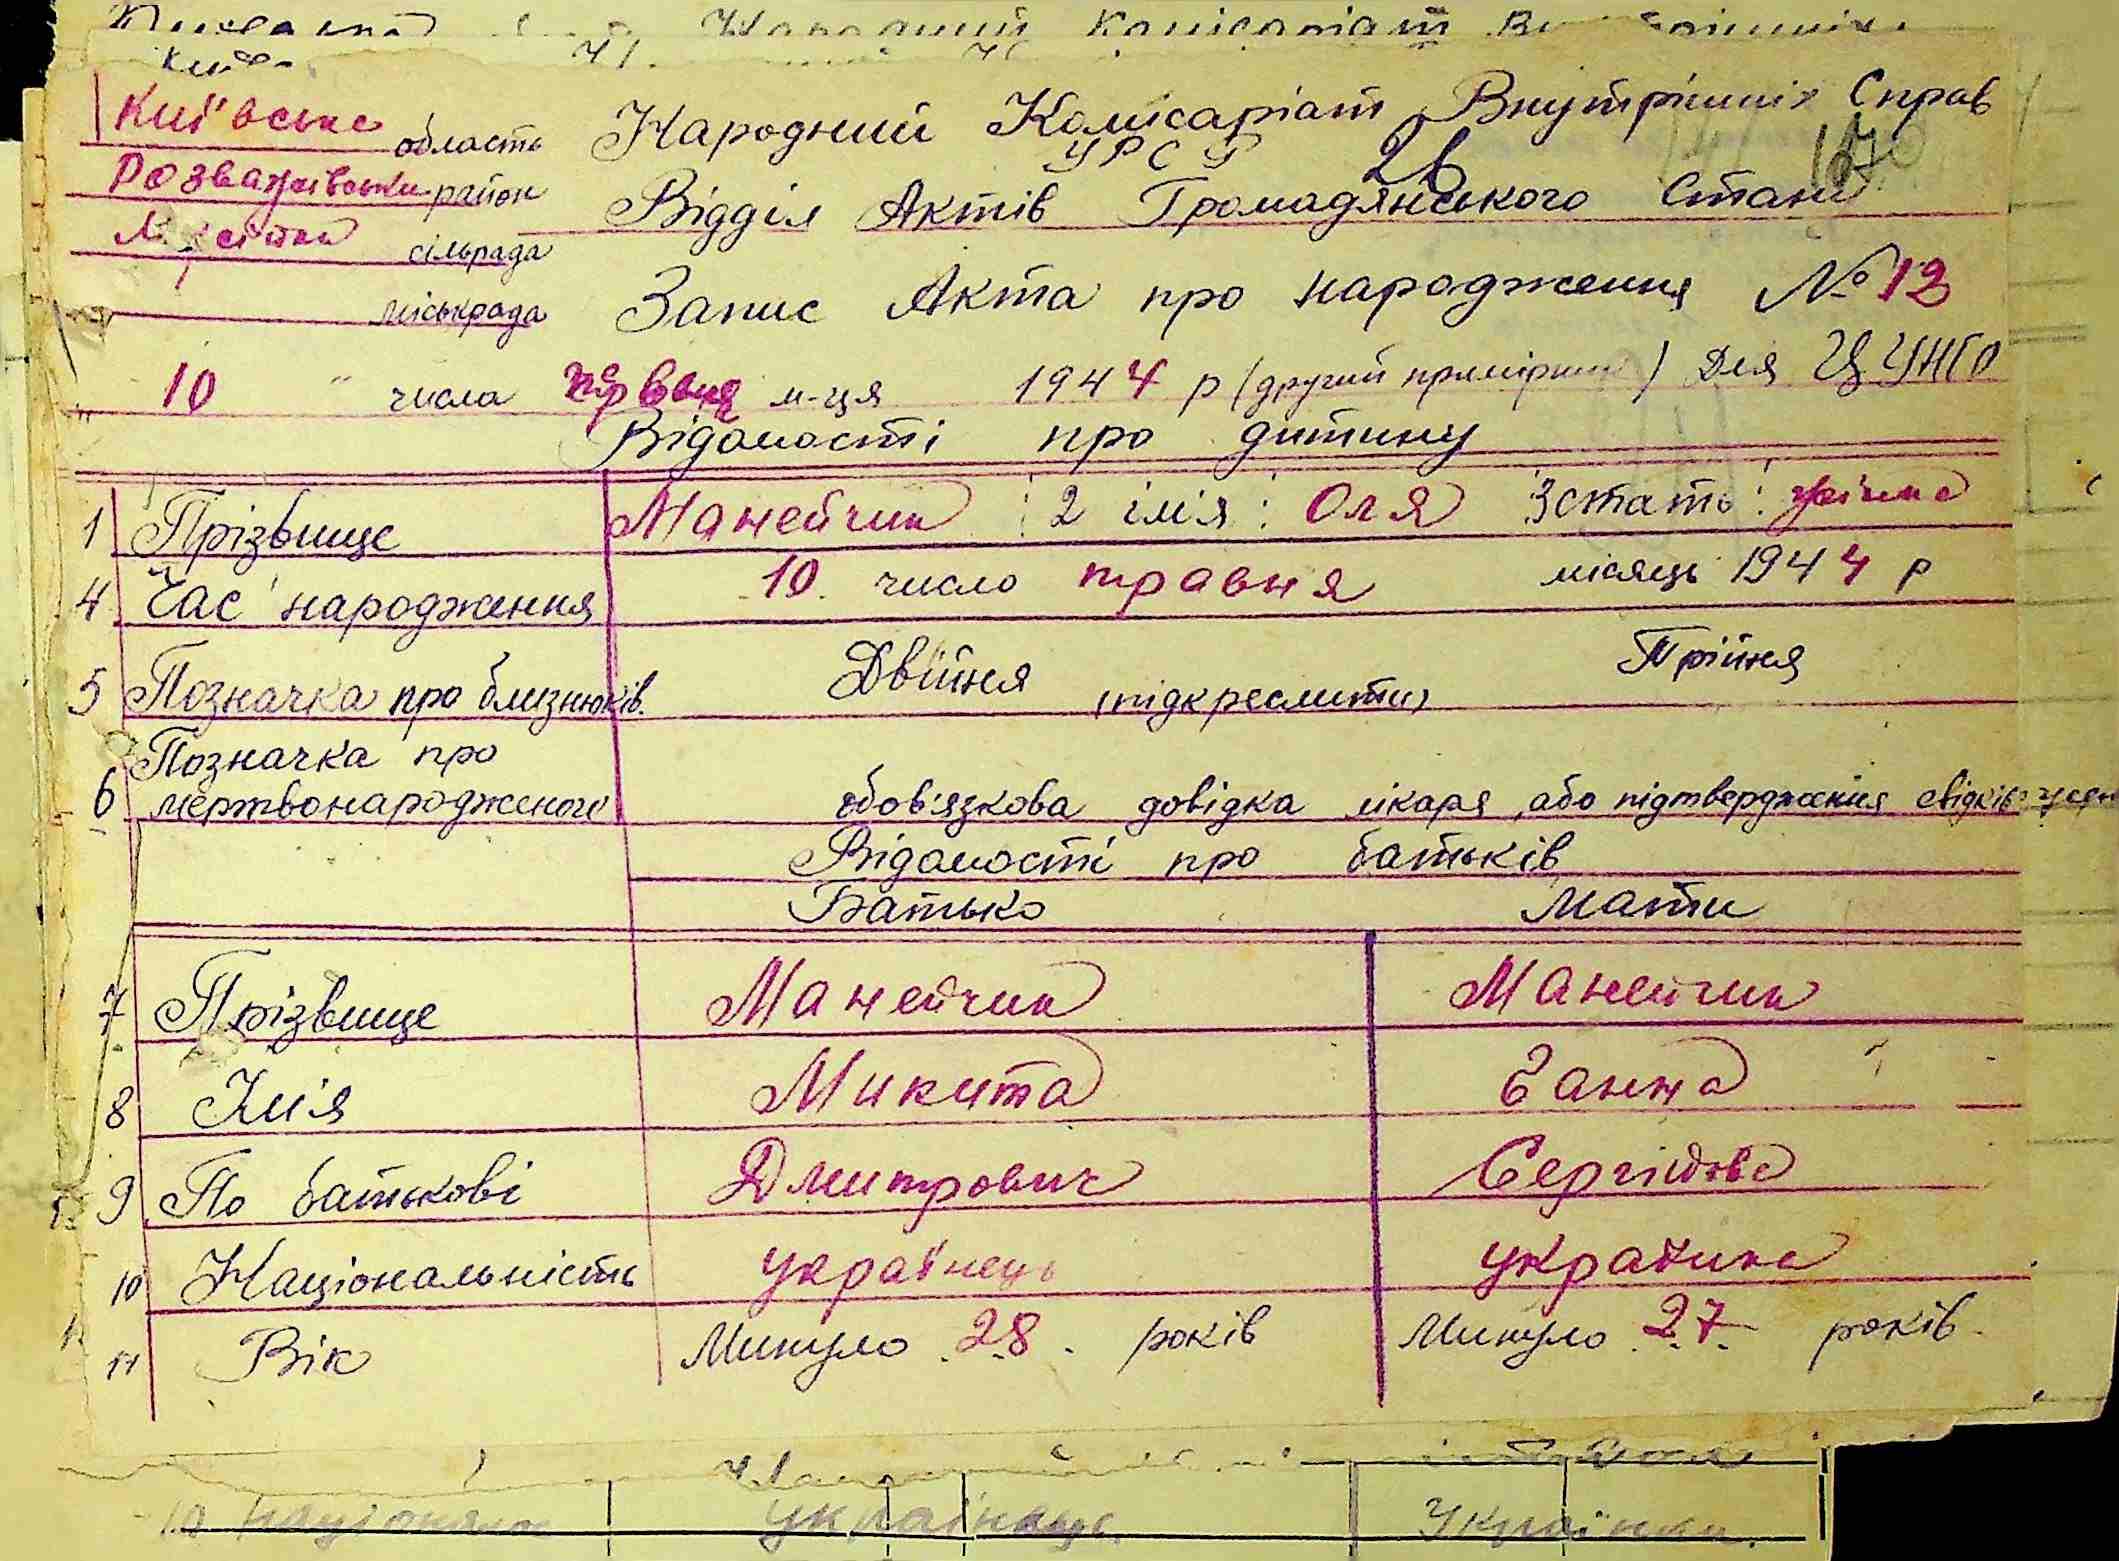 Київська область Народний Комісаріат Внутрішніх Справ
УРСР 26
Розважівський район Відділ Актів Громадянського Стану
сільрада
міськрада Запис Акта про народження № 12
10 " числа червня м-ця 1944 р (другий примірник) Для ЦУНГО
Відомості про дитину
1 Прізвище Манейчик 2 ім'я: Оля 3 стать: жіноча
4 Час народження 10 число травня місяць 1944 р
5 Позначка про близнюків. Двійня (підкреслити) Трійня
Позначка про
6 мертвонародженого обов'язкова довідка лікаря, або підтвердження свідків
Відомості про батьків
Батько Мати
7 Прізвище Манейчик Манейчик
8 Імя Микита Ганна
9 По батькові Дмитрович Сергіївна
10 Національність українець українка
11 Вік Минуло 28 років Минуло 27 років
10 українець Українка